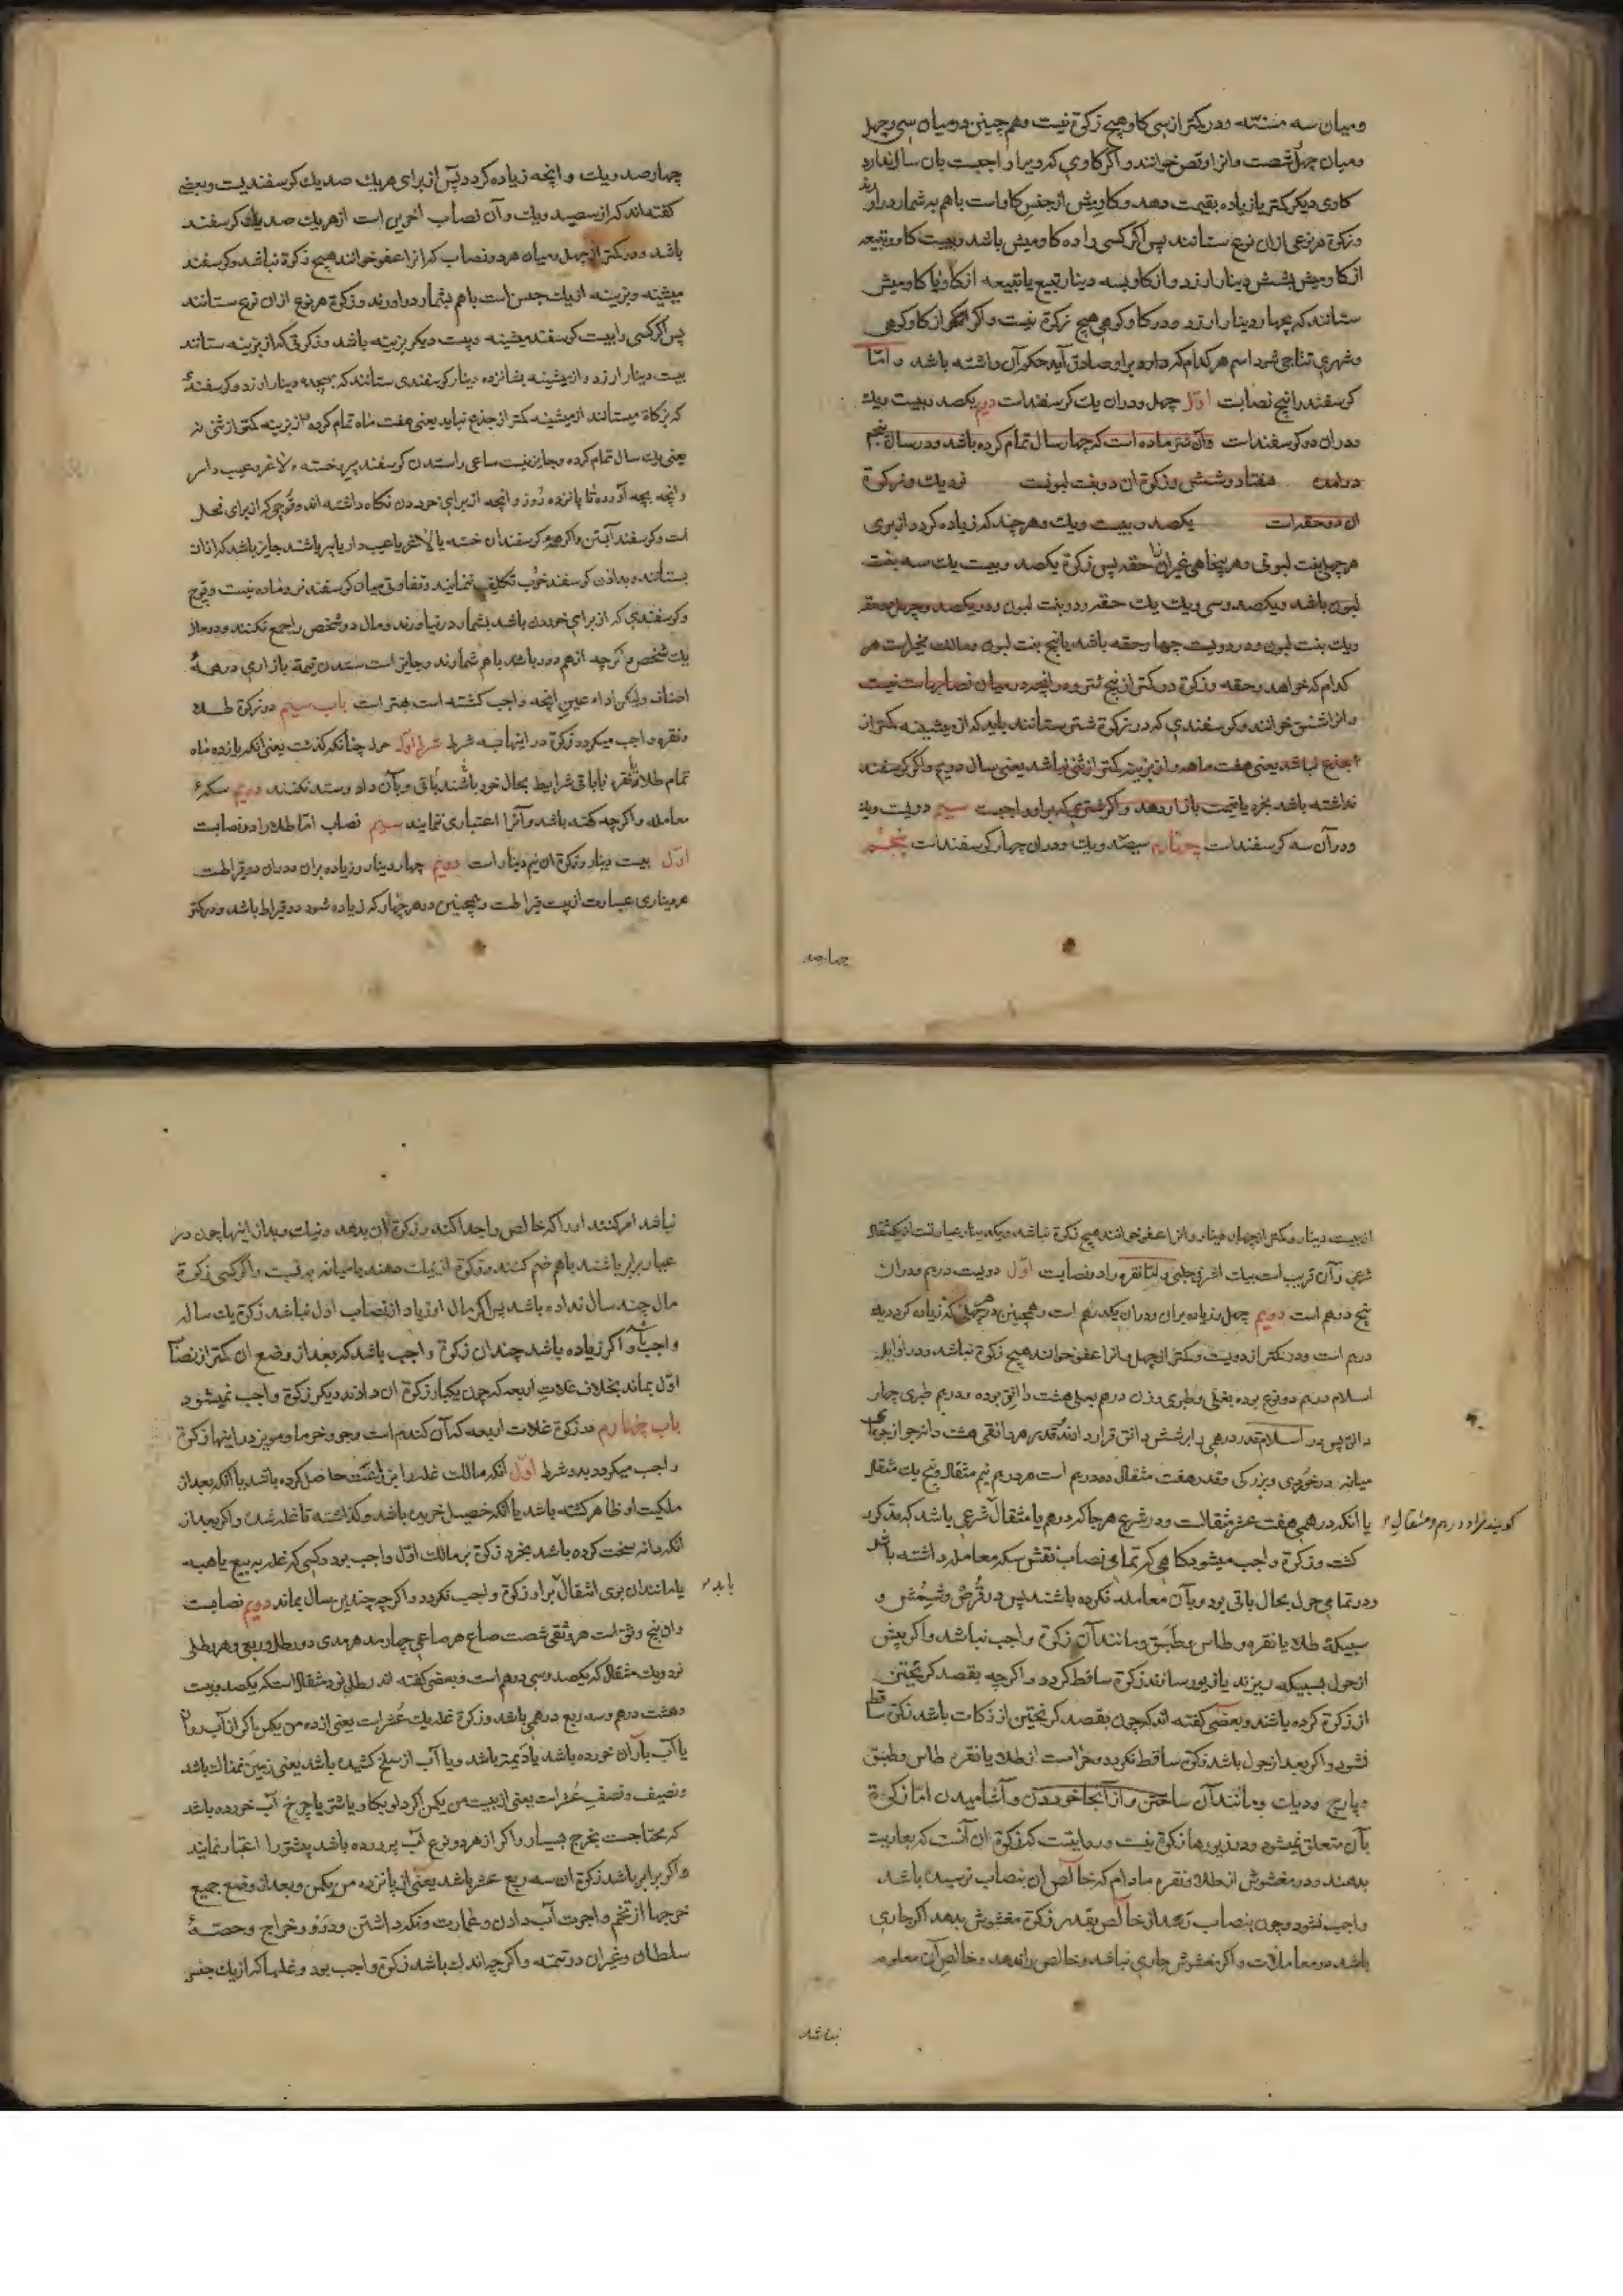 ومیان سه مسنّه ودر کمتر از سی کاو هیچ زکوة نیست وهم چنین در میان سی و چهل
ومیان چهل شصت وانرا وقص خوانند واکر کاوی که ویرا واجبست بان سال ندارد
کاوی دیکر کمتر یا زیاده بقیمت دهد وکاومیش از جنس کاو است باهم به شمار دراورند
وزکوة هر نوعی ازان نوع ستانند پس اکر کسی را ده کاومیش باشد وبیست کاو وتبیعه
از کاومیش بشش دینار ارزد واز کاو بسه دینار تبیع یا تبیعه از کاو یا کاومیش
ستانند که بچهار دینار ارزد ودر کاو کوهی هیچ زکوة نیست واکر از کاو کوهی
وشهری نتاجی شود اسم هر کدام که دارد براو صادق آید حکم آن داشته باشد واما
کوسفند را پنج نصابست اوّل چهل ودران یك کوسفنداست دیم یکصد وبیست ویك
ودران دو کوسفنداست وآن شتر ماده است که چهار سال تمام کرده باشد ودر سال پنجم
درامده هفتاد وشش وزکوة ان دو بنت لبونست نود یك وزکوة
ان دو حقه است یکصد وبیست ویك وهرچند که زیاده کردد از برای
هر چهل بنت لبونی وهر پنجاهی غیران حقه پس زکوة یکصد وبیست یك سه بنت
لبون باشد ویکصد وسی ویك یك حقه ودو بنت لبون ودر یکصد وچهل دو حقه
ویك بنت لبون ودر دویست چهار حقه باشد یا پنج بنت لبون ومالك مخیراست هر
کدام که خواهد بدهد وزکوة در کمتر از پنج شتر ودر انچه در میان نصابهاست نیست
وانرا شنق خوانند وکوسفندی که در زکوة شتر ستانند باید که از میشینه کمتر از
جذع نباشد یعنی هفت ماهه واز بزینه کمتر از ثنی نباشد یعنی سال دویم واکر کوسفند
نداشته باشد بخرد یا قیمت بازار دهد واکر شتری که براو واجبست سیم دویست ویك
ودرآن سه کوسفنداست چهارم سیصد ویك ودران چهار کوسفنداست پنجم
چهارصد
چهارصد ویك وانچه زیاده کردد پس از برای هر یك صد یك کوسفندیست وبعضی
کفته اند که از سیصد ویك وآن نصاب اخرین است از هر یك صد یك کوسفند
باشد ودر کمتر از چهل ومیان هر دو نصاب که انرا عفو خوانند هیچ زکوة نباشد وکوسفند
میشینه وبزینه از یك جنس است باهم بشمار دراورند وزکوة هر نوع ازان نوع ستانند
پس اکر کسی را بیست کوسفند میشینه وبیست دیکر بزینه باشد وزکوتی که از بزینه ستانند
بیست دینار ارزد واز میشینه بشانزده دینار کوسفندی ستانند که بهیجده دینار ارزد وکوسفند
که بزکاة میستانند از میشینه کمتر از جذع نباید یعنی هفت ماه تمام کرده واز بزینه کمتر از ثنی نه
یعنی یك سال تمام کرده وجایز نیست ساعی راستدن کوسفند پیر وخسته ولاغر وعیب دار
وانچه بچه آورده تا پانزده روز وانچه از برای خوردن نکاه داشته اند وقوچی که از برای فحل
است وکوسفند آبستن واکر همه کوسفندان خسته یا لاغر یا عیب دار یا پیر باشند جایز باشد که ازان
بستانند وبدادن کوسفند خوب تکلیف ننمایند وتفاوتی میان کوسفند نر وماده نیست وقوچ
وکوسفندی که از برای خوردن باشد بشمار در نیاورند ومال دو شخص را جمع نکنند ودو مال
یك شخص اکرچه از هم دور باشد باهم شمارند وجایز است ستدن قیمة بازاری در همهٔ
اصناف ولیکن اداء عین انچه واجب کشته است بهتر است باب سیم در زکوة طلا
ونقره واجب میکردد زکوة در اینها بسه شرط شرط اوّل حول چنانکه کذشت یعنی انکه یازده ماه
تمام طلا ونقره با باقی شرایط بحال خود باشند باقی وبآن داد وستد نکنند دویم سکهٔ
معامله واکرچه کهنه باشد وآنرا اعتباری ننمایند سیم نصاب امّا طلا را دو نصابست
اوّل بیست دینار وزکوة ان نیم دینار است دویم چهار دینار وزیاده بران ودران دو قیراطست
هر دیناری عبارت از بیست قیراطست وهمچنین در هر چهار که زیاده شود دو قیراط باشد ودر کمتر
از بیست دینار وکمتر از چهار دینار وانرا عفو خوانند هیچ زکوة نباشد ویکدینار عبارتست از یکمثقال
شرعی وآن قریب است بیك اشرفی جلبی وامّا نقره را دو نصابست اوّل دویست درم ودران
پنج درهم است دویم چهل وزیاده بران ودران یکدرهم است وهمچنین در هر چهل که زیاده کردد یك
درم است ودر کمتر از دویست وکمتر از چهل وانرا عفو خوانند هیچ زکوة نباشد ودر اوایل
اسلام درم دو نوع بوده بغلی وطبری وزن درهم بغلی هشت دانق بوده ودرم طبری چهار
دانق پس در اسلام قدر درهمی را بر شش دانق قرار دادند قدر هر دانقی هشت دانه جو از جوهای
میانه در خوردی وبزرکی وقدر هفت مثقال ده درم است هر درم نیم مثقال وپنج یك مثقال
یا انکه درهمی هفت عشر مثقالست ودر شرع هر جا که درهم یا مثقال شرعی باشد که مذکور
کویند مراد درم ومثقال
کشت وزکوة واجب میشود کاهی که تمامی نصاب نقش سکه معامله داشته باشد
ودر تمامی حول بحال باقی بود وبآن معامله نکرده باشند پس در قُرص وشِمش و
سبیکهٔ طلا یا نقره وطاس وطبق ومانند آن زکوة واجب نباشد واکر پیش
از حول بسبیکه ریزند یا زیور سازند زکوة ساقط کردد واکرچه بقصد کریختن
از زکوة کرده باشند وبعضی کفته اند که چون بقصد کریختن از زکات باشد زکوة ساقط
نشود واکر بعد از حول باشد زکوة ساقط نکردد وحرامست از طلا یا نقره طاس وطبق
وپارچ ودیك ومانند آن ساختن واز آنجا خوردن وآشامیدن امّا زکوة
بآن متعلق نمیشود ودر زیورها زکوة نیست وروایتست که زکوة ان آنست که بعاریت
بدهند ودر مغشوش از طلا ونقره مادام که خالص ان بنصاب نرسیده باشد
واجب نشود وچون بنصاب رسد از خالص بقدر زکوة مغشوش بدهد اکر جاری
باشد در معاملات واکر مغشوش جاری نباشد وخالص را ندهد وخالص آن معلوم
نباشد
نباشد امر کنند اورا که خالص را جدا کند وزکوة ان بدهد ونیك وبد از اینها چون در
عیار برابر باشند باهم ضم کنند وزکوة از نیك دهند یا میانه بقیمت واکر کسی زکوة
مال چند سال نداده باشد پس اکر مال او زیاد از نصاب اول نباشد زکوة یك ساله
واجب باشد واکر زیاده باشد چندان زکوة واجب باشد که بعد از وضع ان کمتر از نصاب
اوّل بماند بخلاف غلات اربعه که چون یکبار زکوة ان دادند دیکر زکوة واجب نمیشود
باب چهارم در زکوة غلات اربعه که آن کندم است وجو وخرما ومویز در اینها زکوة
واجب میکردد بدو شرط اوّل انکه مالك غله را بزراعت حاصل کرده باشد یا انکه بعد از
ملکیت او ظاهر کشته باشد یا انکه خصیل خریده باشد وکذاشته تا غله شده واکر بعد از
انکه دانه سخت کرده باشد بخرد زکوة بر مالك اوّل واجب بود وکسی که غله به بیع یا هبه
یا مانند ان بوی انتقال یابد براو زکوة واجب نکردد واکرچه چندین سال بماند دویم نصابست
وان پنج وسق است هر وثقی شصت صاع هر صاعی چهار مد هر مدی دو رطل وربعی وهر رطلی
نود ویك مثقال که یکصد وسی درهم است وبعضی کفته اند رطلی نود مثقال است که یکصد وبیست
وهشت درهم وسه ربع درهمی باشد وزکوة غله یك عُشر است یعنی از ده من یکمن اکر از آب روان
یا آب باران خورده باشد یا دیمه باشد ویا آب از بیخ کشیده باشد یعنی زمین نمناك باشد
ونصیف ونصف عُشر است یعنی از بیست من یکمن اکر دلو بکاو یا شتر یا چرخ آب خورده باشد
که محتاجست بخرج بسیار واکر از هر دو نوع آب پرورده باشد بیشتر را اعتبار نمایند
واکر برابر باشد زکوة ان سه ربع عشر باشد یعنی از پانزده من یکمن وبعد از وضع جمیع
خرجها از تخم واجرت آب دادن وعمارت ونکه داشتن ودرو وخراج وحصهٔ
سلطان وغیران در تتمه واکرچه اندك باشد زکوة واجب بود وغلها که از یك جنس